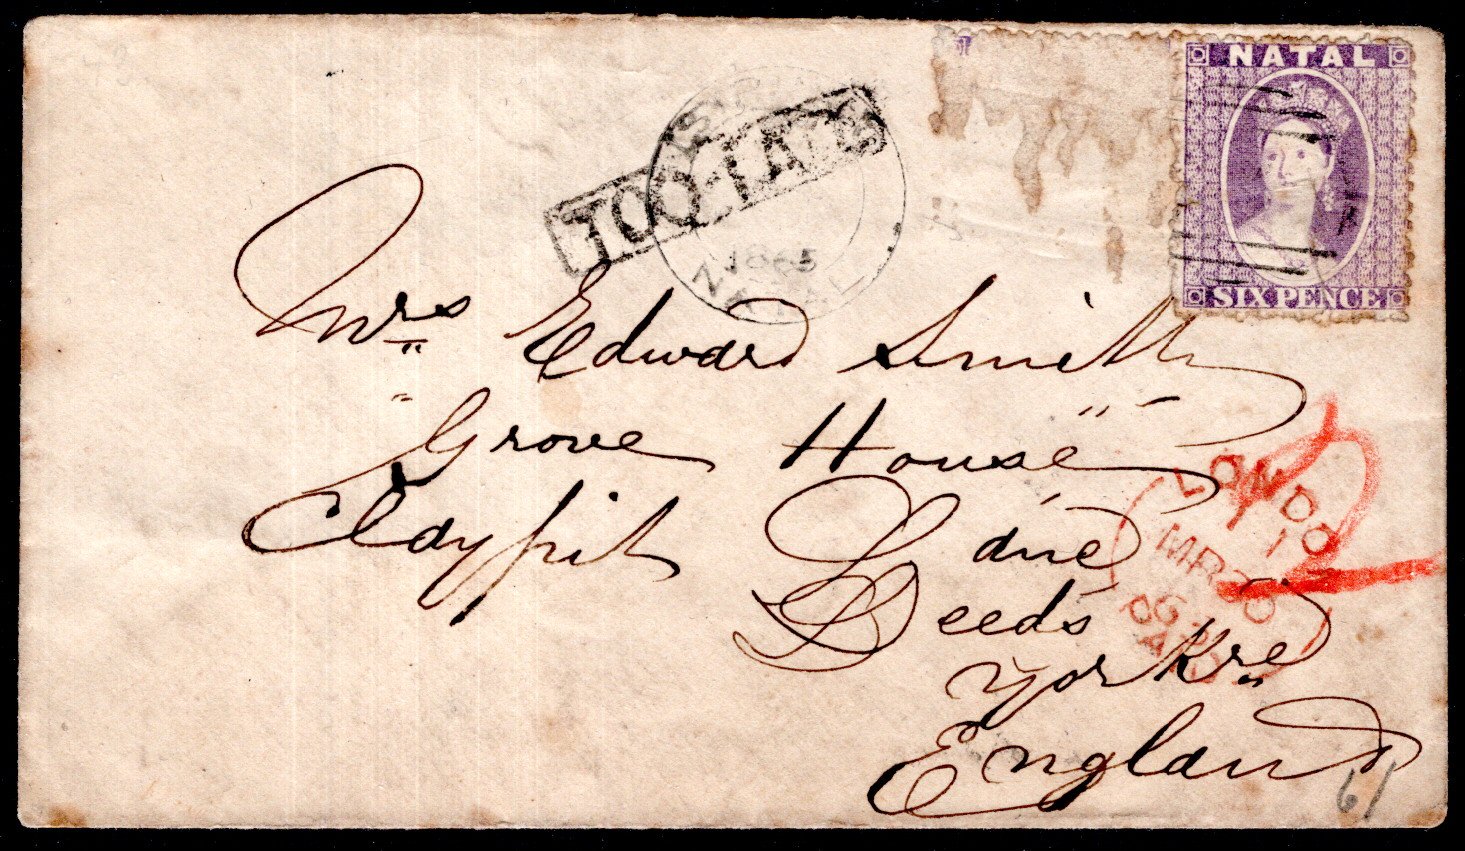 NATAL
SIX PENCE
TOO-LATE
1865
NATAL
Mrs Edward Smith
Grove House
Claypit Lane
Leeds
Yorkre
England
2
LONDON
1
MR 20
65
PAID
61